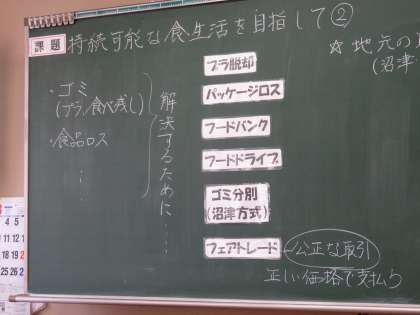 課題 持続可能な食生活を目指して②
・ゴミ
(プラ/食べ残し)
・食品ロス
解決するために……
プラ脱却
パッケージロス
フードバンク
フードドライブ
ゴミ分別
(沼津方式)
フェアトレード 公正な取引
正しい価格で支払う
☆ 地元の
(沼津
4 5
11 12
18 19
25 26